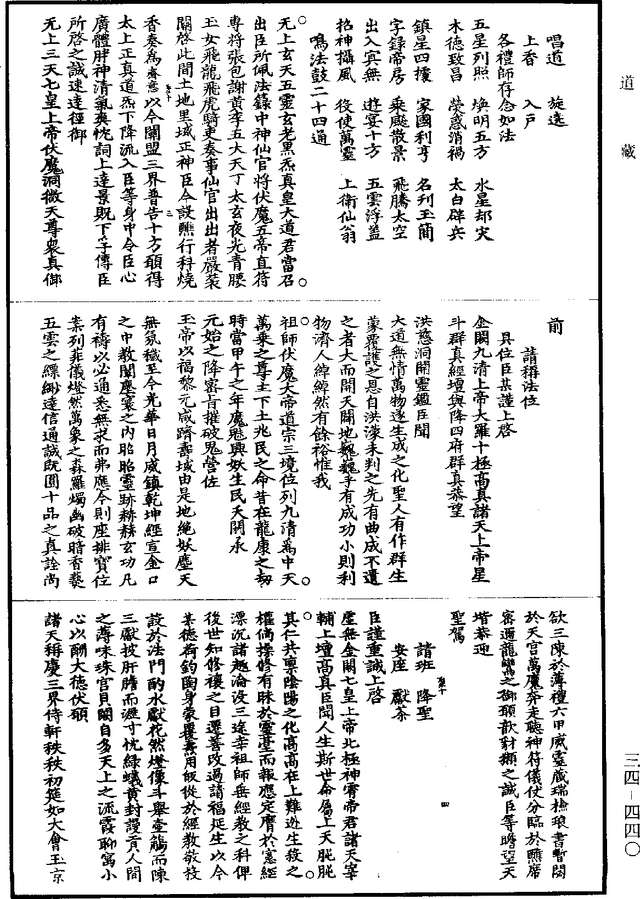 道藏
唱道　旋遶
上香　入戶
各禮師存念如法
五星列照　煥明五方　水星却災
木德致昌　熒惑消禍　太白辟兵
鎮星四據　家國利亨　名列玉簡
字錄帝房　乘飈散景　飛騰太空
出入冥無　遊宴十方　五雲浮蓋
招神攝風　役使萬靈　上衛仙翁
鳴法鼓二十四通
无上玄天五靈玄老黑炁真皇大道君當召
出臣所佩法籙中神仙官將伏魔五帝直符
專將張包謝黃李五大天丁太玄夜光青腰
玉女飛龍飛虎騎吏奏事仙官出出者嚴裝
關啓此間土地里域正神臣今設醮行科燒
香奏為齋意以今關盟三界普告十方願得
太上正真道炁下降流入臣等身中令臣心
廣體胖神清氣爽忱詞上達景貺下孚傳臣
所啓之誠速達徑御
无上三天七皇上帝伏魔洞微天尊衆真御
前
請稱法位
具位臣某謹上啓
金闕九清上帝大羅十極高真諸天上帝星
斗群真經壇與降四府群真恭望
洪慈洞開靈鑑臣聞
大道無情萬物遂生成之化聖人有作群生
蒙覆護之恩自洪濛未判之先有曲成不遺
之者大而開天闢地巍巍乎有成功小則利
物濟人綽綽然有餘裕惟我
祖師伏魔大帝道宗三境位列九清為中天
萬乘之尊主下土兆民之命昔在龍康之劫
時當甲午之年魔魋興妖生民夭閼承
元始之降審肯摧破鬼營佐
玉帝以福黎元咸躋壽域由是地絕妖塵天
無氛穢至今光華日月威鎮乾坤經宣金口
之中教闡塵寰之內昭昭靈跡赫赫玄功凡
有禱以必通悉無求而弗應今則座排寶位
案列菲儀燈然萬象之森羅燭幽破暗香爇
五雲之縹緲達信通誠既圓十品之真詮尚
欲三陳於薄禮六甲威靈藏瑞檢琅書暫閟
於天宮萬魔奔走聽神符儀仗分臨於醮席
審邇龍鸞之御願歆對擷之誠臣等瞻望天
堦恭迎
聖駕
請班　降聖
安座　獻茶
臣謹重誠上啓
虛無金闕七皇上帝北極神霄帝君諸天宰
輔上壇高真臣聞人生斯世命屬上天肫肫
其仁共稟陰陽之化高高在上難逃生殺之
權倘操修有昧於靈臺而報應定膺於憲經
漂沉諸趣淪沒三途幸祖師垂經教之科俾
後世知修禳之日遷善改過請福延生以今
某德荷鈞陶身蒙覆燾用皈從於經教敬投
設於法門酌水獻花然燈像斗舉壺觴而陳
三獻披肝膽而瀝寸忱綠蟻黃封謾貢人間
之薄味珠宮貝闕自多天上之流霞聊寓小
心以酬大德伏願
諸天稱慶三界侍軒秩秩初筵如大會玉京
三四－四四〇